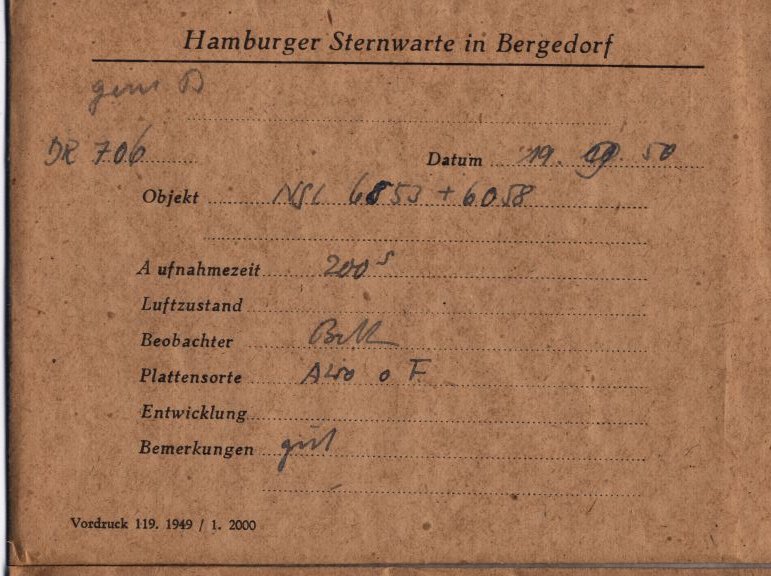 Hamburger Sternwarte in Bergedorf
DR 706
Datum 19. 50
Objekt NGC 6853 + 6058
Aufnahmezeit 200 s
Luftzustand
Beobachter
Plattensorte
Entwicklung
Bemerkungen gut
Vordruck 119. 1949 / 1. 2000